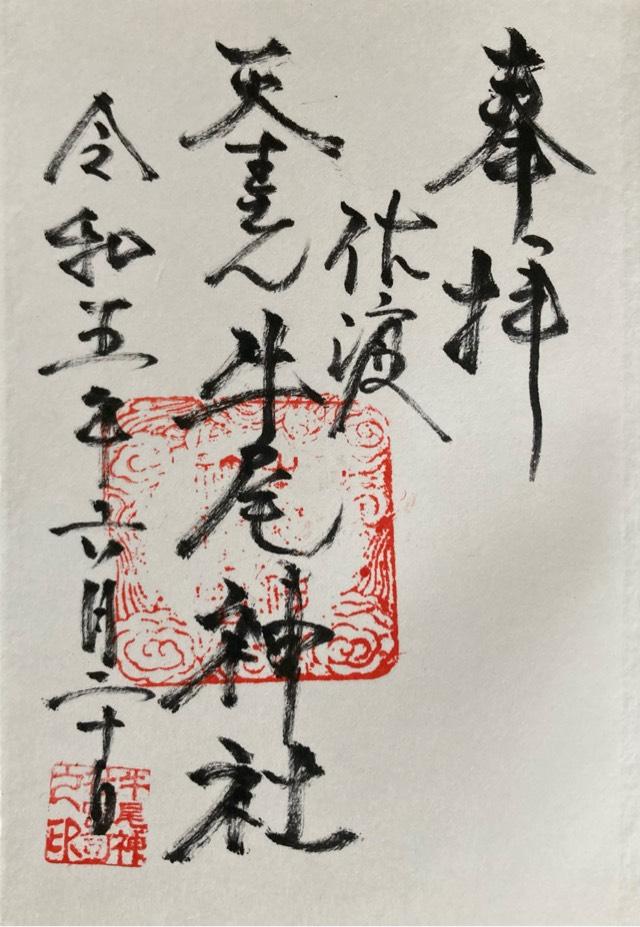 奉拝
佐渡
天王さん 牛尾神社
令和五年六月二十日
牛尾神
之印